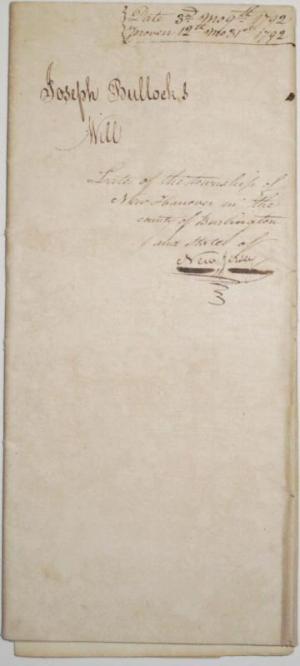 Date 3rd Mo 9th 1792
Proven 12th Mo 31st 1792
Joseph Bullock's
Will
Late of the township of
New Hanover in the
county of Burlington
and State of
New Jersey